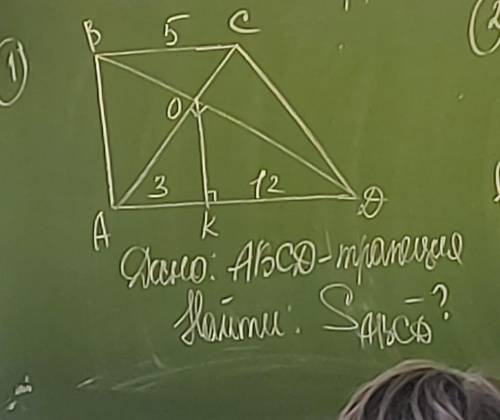 1)
B 5 C
O
3 12
A K D
Дано: ABCD - трапеция
Найти: S ABCD - ?